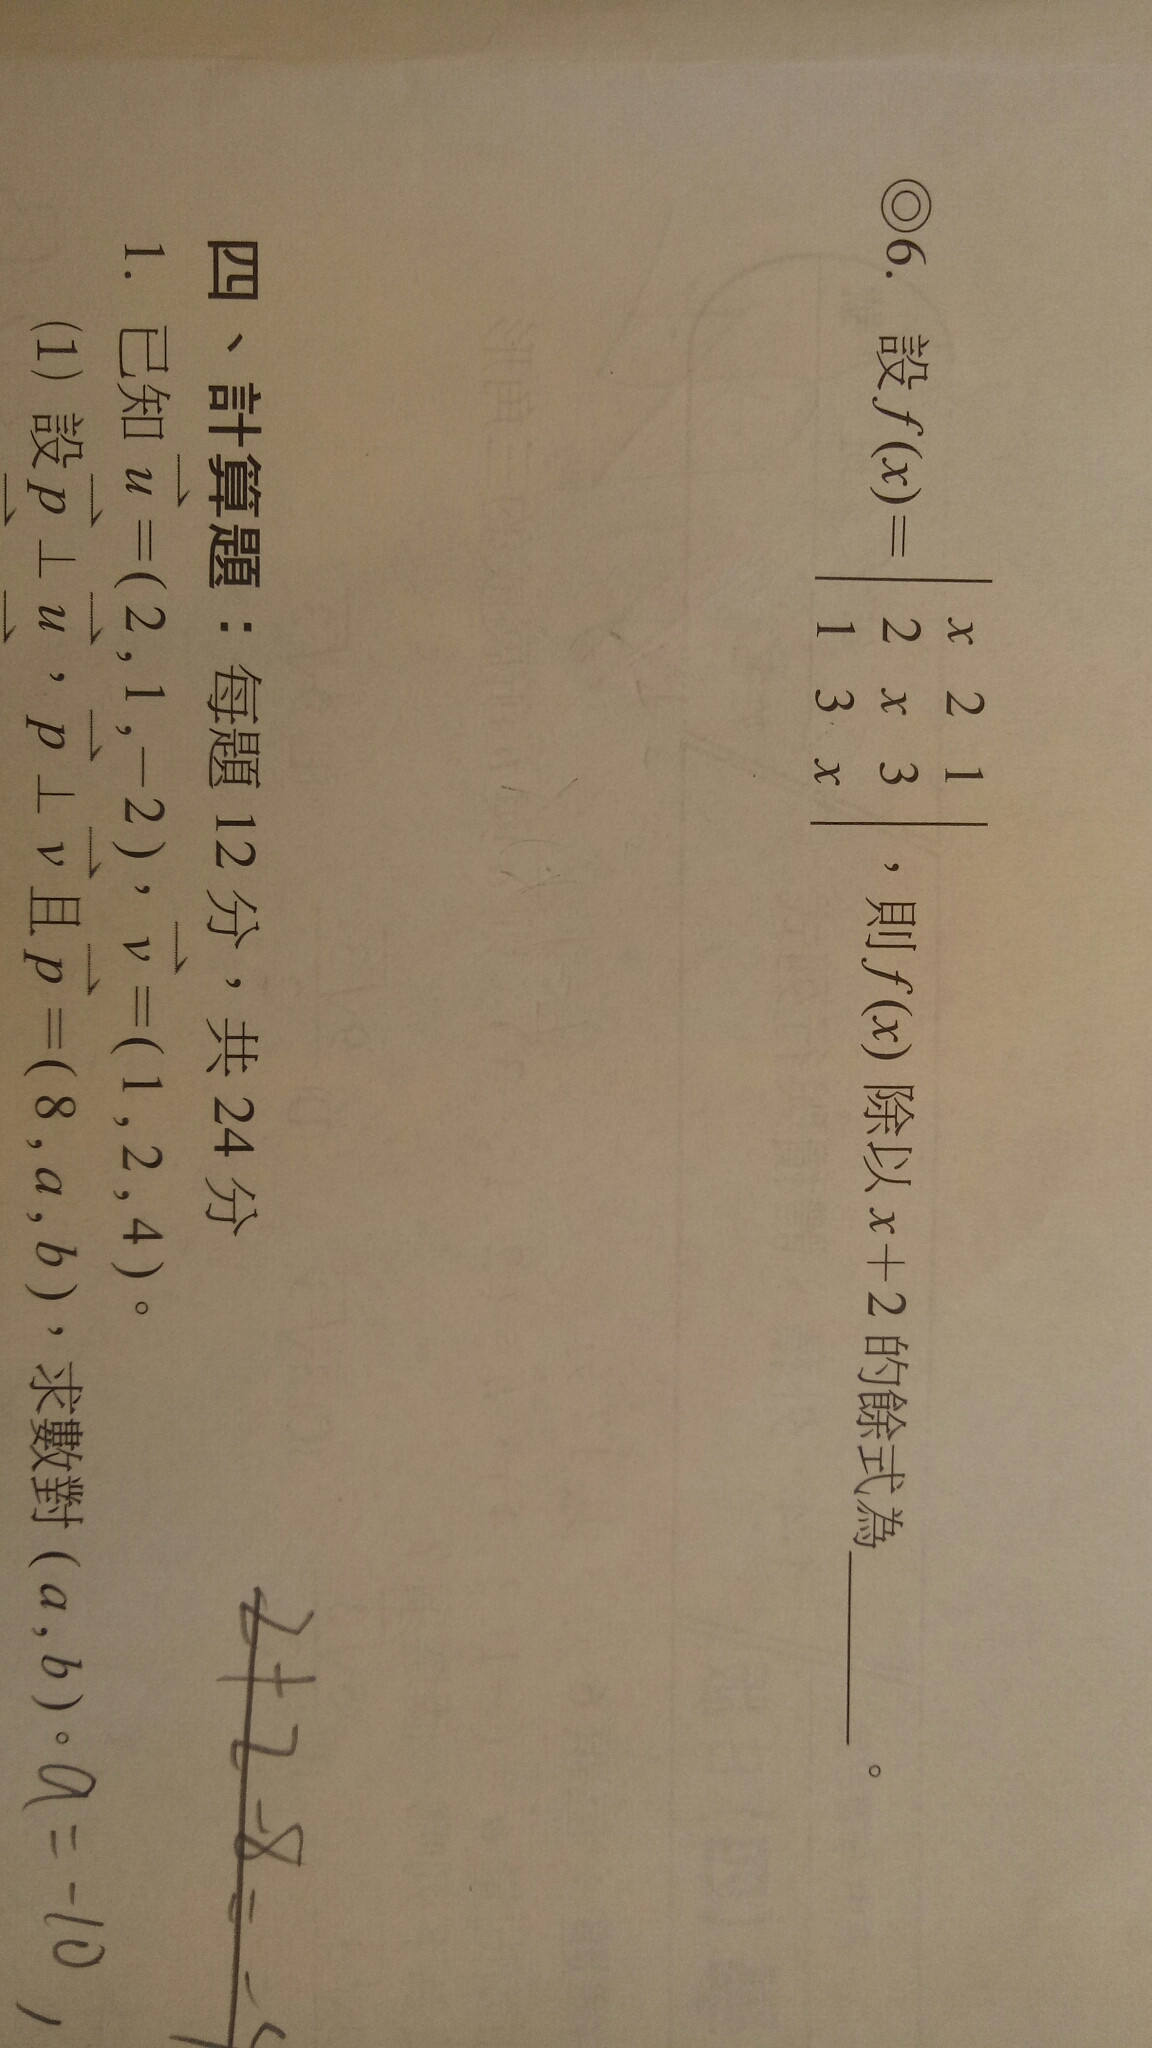 ◎6. 設 f(x)=
x 2 1
2 x 3
1 3 x
,則 f(x) 除以 x+2 的餘式為________。
四、計算題:每題 12 分,共 24 分
2+2-8=-4
1. 已知 u⃗=(2,1,-2),v⃗=(1,2,4)。
(1) 設 p⃗⊥u⃗,p⃗⊥v⃗ 且 p⃗=(8,a,b),求數對 (a,b)。a=-10,